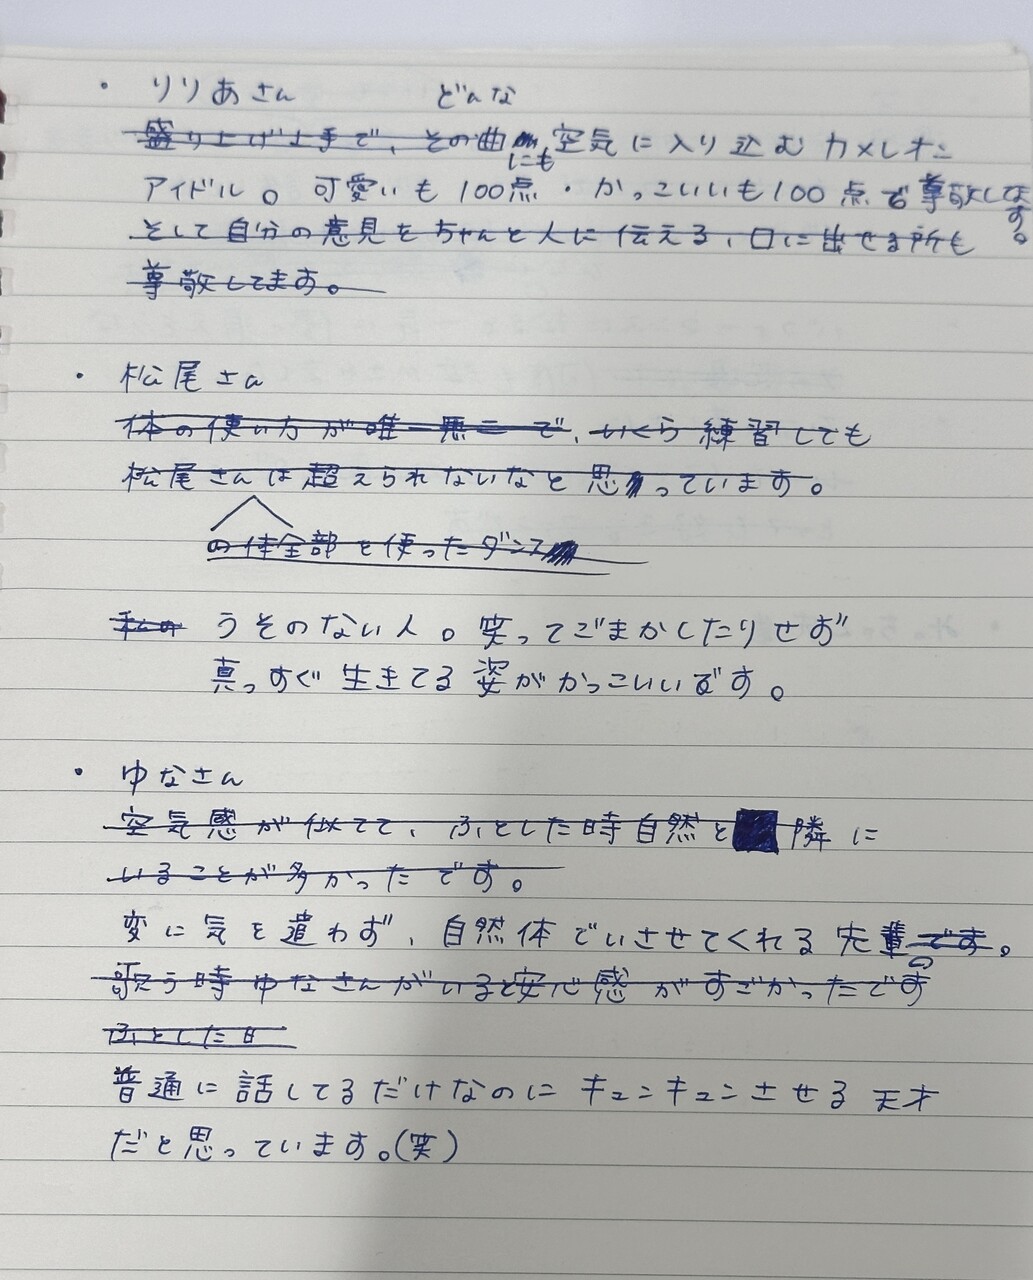 ・りりあさん
どんな
盛り上げ上手で、その曲 空気に入り込むカメレオン
にも
アイドル。可愛いも100点・かっこいいも100点で尊敬してます。
そして自分の意見をちゃんと人に伝える、口に出せる所も
尊敬してます。
・松尾さん
体の使い方が唯一悪二で、いくら練習しても
松尾さんは超えられないなと思っています。
の体全部を使ったダンス
私の うそのない人。笑ってごまかしたりせず
真っすぐ生きてる姿がかっこいいです。
・ゆなさん
空気感が似てて、ふとした時自然と 隣に
いることが多かったです。
変に気を遣わず、自然体でいさせてくれる先輩です。
歌う時ゆなさんがいると安心感がすごかったです
ふとした日
普通に話してるだけなのにキュンキュンさせる天才
だと思っています。(笑)